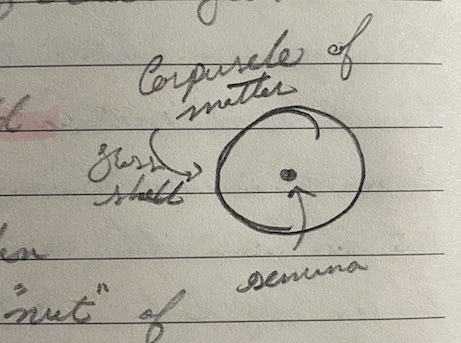 Corpuscle of
matter
shell
semina
"nut" of